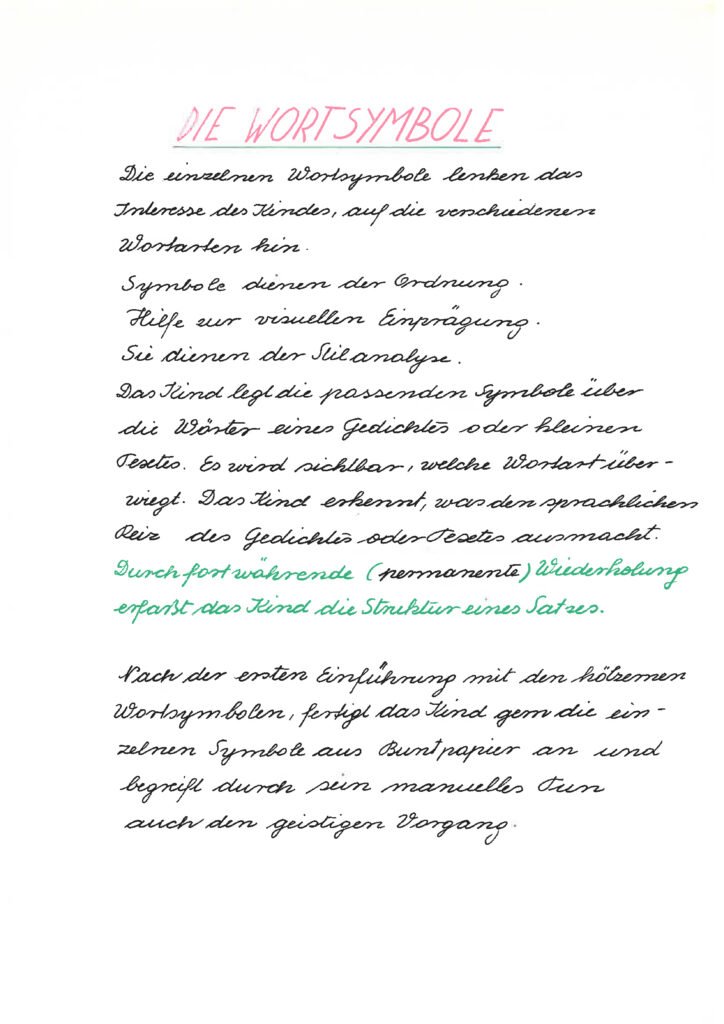 DIE WORTSYMBOLE
Die einzelnen Wortsymbole lenken das
Interesse des Kindes, auf die verschiedenen
Wortarten hin.
Symbole dienen der Ordnung.
Hilfe zur visuellen Einprägung.
Sie dienen der Stilanalyse.
Das Kind legt die passenden Symbole über
die Wörter eines Gedichtes oder kleinen
Textes. Es wird sichtbar, welche Wortart über-
wiegt. Das Kind erkennt, was den sprachlichen
Reiz des Gedichtes oder Textes ausmacht.
Durch fortwährende (permanente) Wiederholung
erfaßt das Kind die Struktur eines Satzes.
Nach der ersten Einführung mit den hölzernen
Wortsymbolen, fertigt das Kind gern die ein-
zelnen Symbole aus Buntpapier an und
begreift durch sein manuelles Tun
auch den geistigen Vorgang.